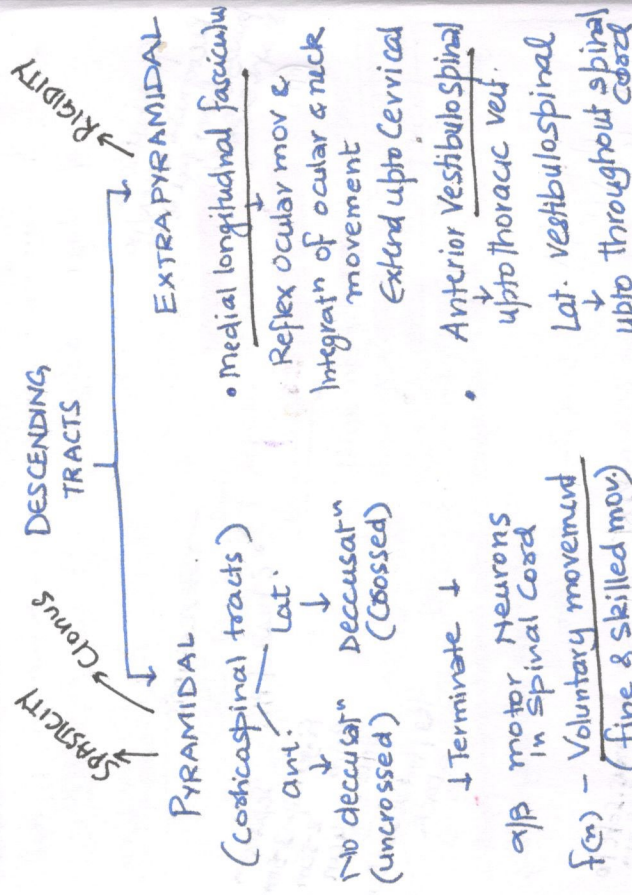 DESCENDING
TRACTS
SPASTICITY
Clonus
PYRAMIDAL
(Corticaspinal tracts)
ant.
Lat.
No deccusatⁿ
(uncrossed)
Deccusatⁿ
(Crossed)
↓ Terminate ↓
α/β motor Neurons
in Spinal Cord
f(n) - Voluntary movement
(fine & skilled mov.)
RIGIDITY
EXTRAPYRAMIDAL
• Medial longitudnal fasciculu
↓
Reflex ocular mov &
Integratⁿ of ocular & neck
movement
Extend upto Cervical
• Anterior Vestibulospinal
↓
upto thoracic vert.
Lat. vestibulospinal
↓
upto throughout spinal
cord